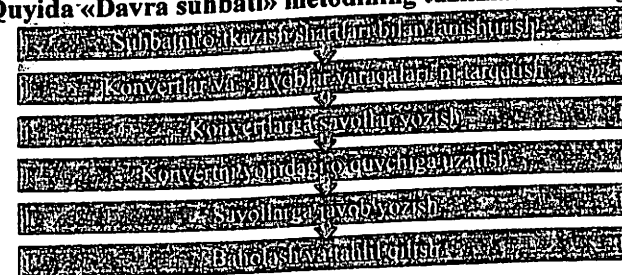 Quyida «Davra suhbati» metodining
Suhbatni o'tkazish shartlari bilan tanishtirish
Konvertlar va "Javoblar varaqalari"ni tarqatish
Konvertlarga savollar yozish
Konvertni yonidagi o'quvchiga uzatish
Savollarga javob yozish
Baholash va tahlil qilish